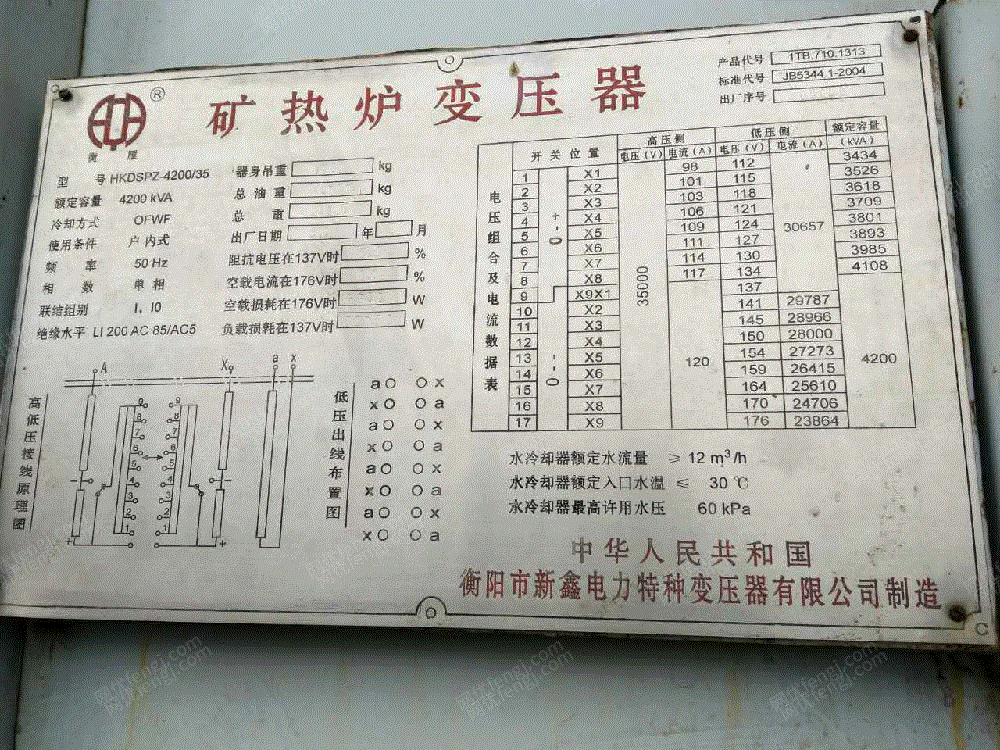 矿热炉变压器
®
衡屋
产品代号 1TB.710.1313
标准代号 JB5344.1-2004
出厂序号
型号 HKDSPZ-4200/35
额定容量 4200 kVA
冷却方式 OFWF
使用条件 户内式
频率 50 Hz
相数 单相
联结组别 I、I0
绝缘水平 LI 200 AC 85/AC5
器身吊重 kg
总油重 kg
总重 kg
出厂日期 年 月
阻抗电压在137V时 %
空载电流在176V时 %
空载损耗在176V时 W
负载损耗在137V时 W
电压组合及电流数据表
开关位置 高压侧 低压侧 额定容量
电压(V) 电流(A) 电压(V) 电流(A) (kVA)
1 X1 98 112 3434
2 X2 101 115 3526
3 X3 103 118 3618
4 + X4 106 121 3709
5 X5 109 124 30657 3801
6 X6 111 127 3893
7 X7 114 130 3985
8 X8 117 134 4108
9 X9X1 35000 137
10 X2 141 29787
11 X3 145 28966
12 X4 150 28000
13 X5 120 154 27273 4200
14 X6 159 26415
15 X7 164 25610
16 X8 170 24706
17 X9 176 23864
高低压接线原理图
A X B X
9 9
8 8
7 7
6 6
5 5
4 4
3 3
2 2
1 1
+ +
低压出线布置图
a x
x a
a x
x a
a x
x a
a x
x a
水冷却器额定水流量 ≥ 12 m³/h
水冷却器额定入口水温 ≤ 30 ℃
水冷却器最高许用水压 60 kPa
中华人民共和国
衡阳市新鑫电力特种变压器有限公司制造
C